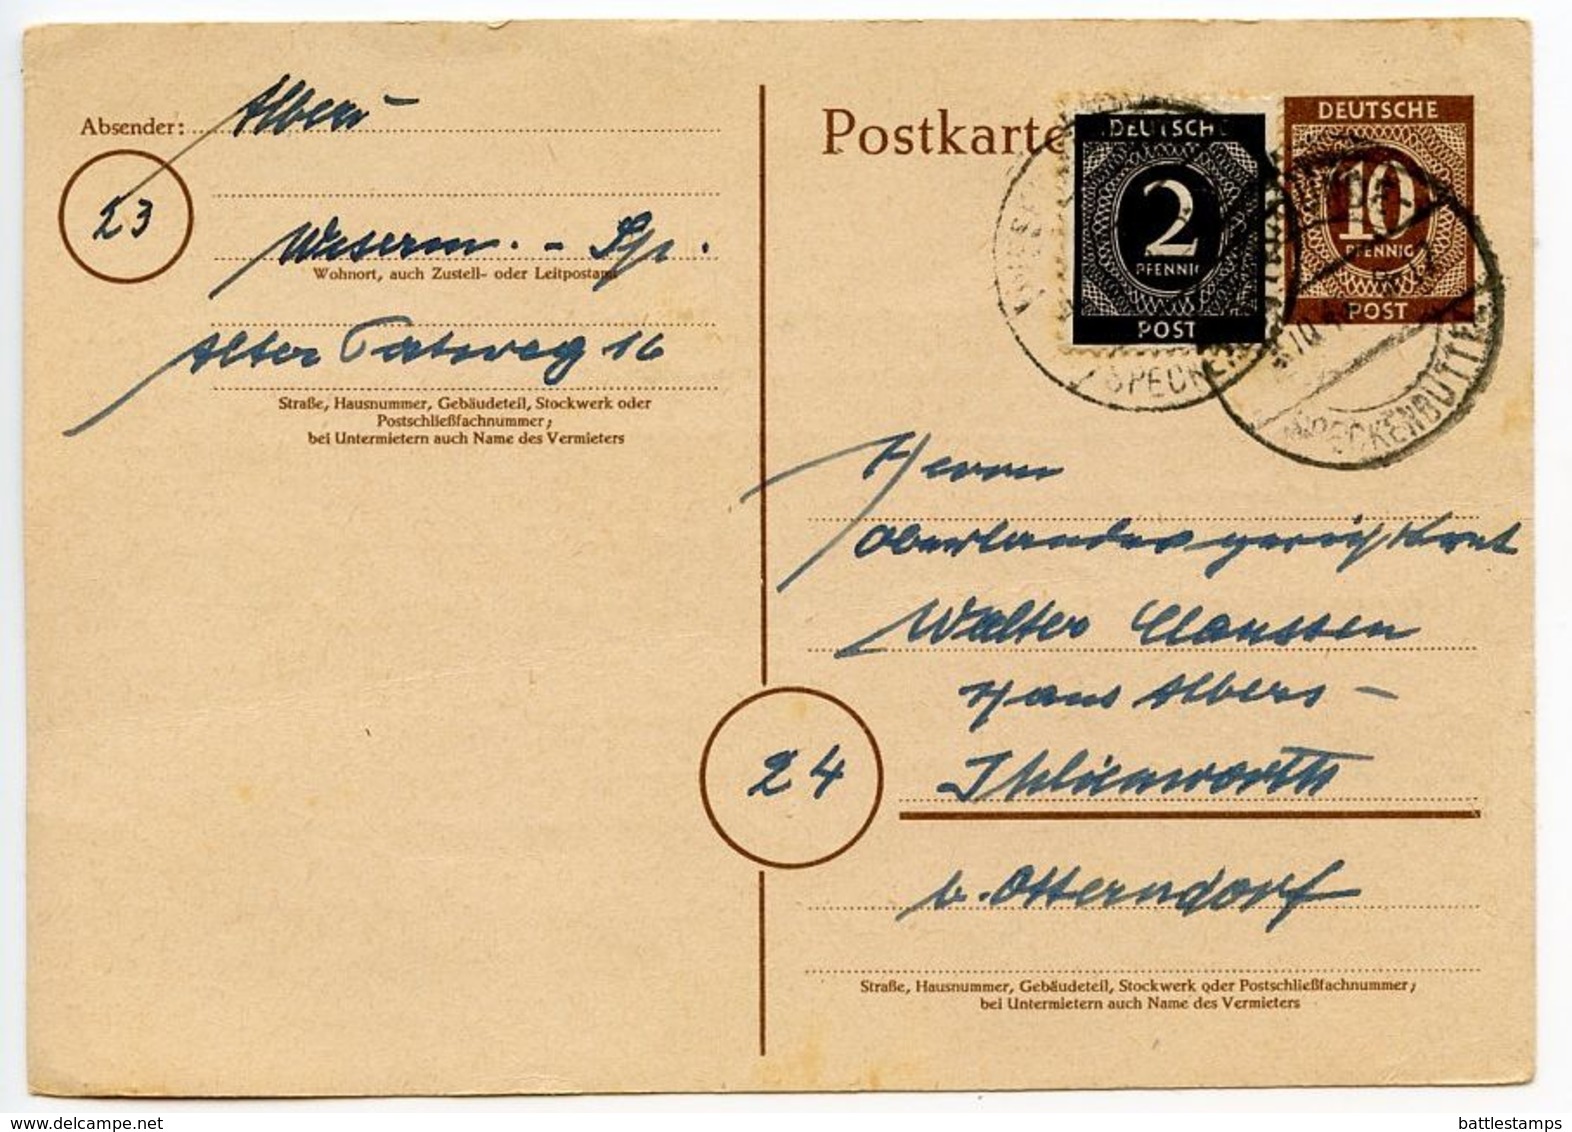 Absender: Albers
23
Weserm. - Sp.
Wohnort, auch Zustell- oder Leitpostamt
Alter 16
Straße, Hausnummer, Gebäudeteil, Stockwerk oder
Postschließfachnummer;
bei Untermietern auch Name des Vermieters
Postkarte
DEUTSCHE
2
PFENNIG
POST
DEUTSCHE
10
PFENNIG
POST
SPECKENBÜTTEL
Herrn
Oberlandesgerichtsrat
Walter Claussen
Hans Albers -
24
Ihlienworth
b. Otterndorf
Straße, Hausnummer, Gebäudeteil, Stockwerk oder Postschließfachnummer;
bei Untermietern auch Name des Vermieters
delcampe.net
battlestamps